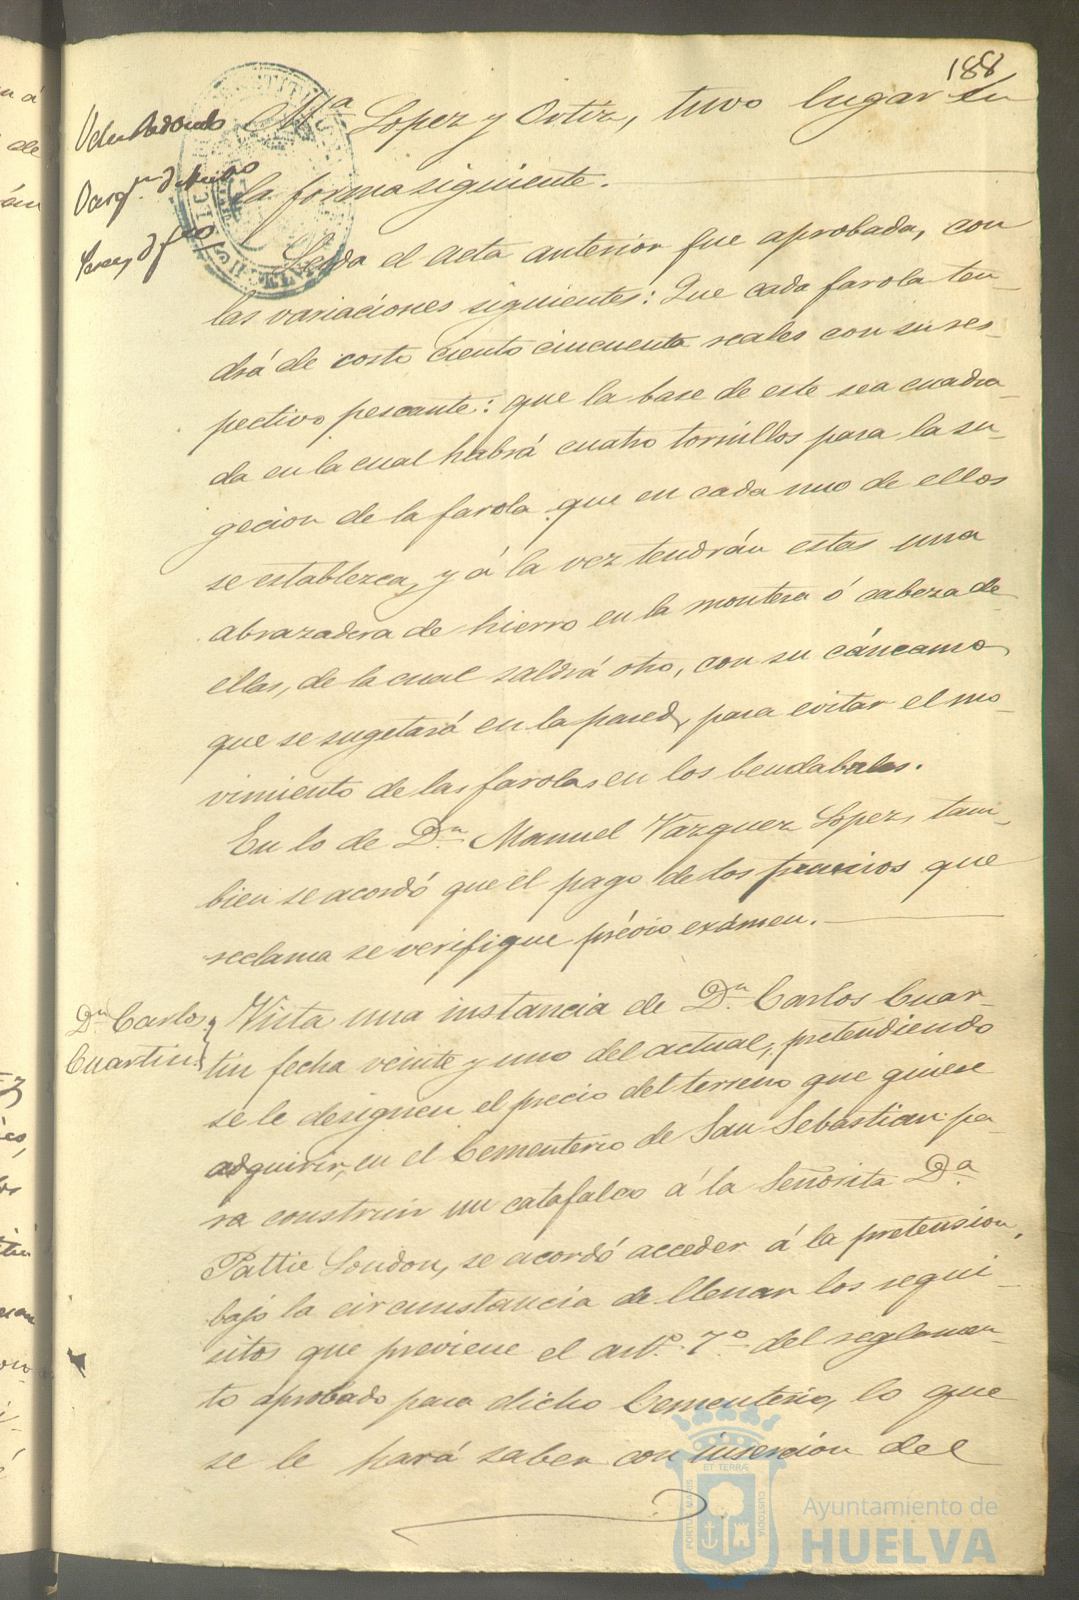 188
Mª Lopez y Ortiz, tuvo lugar en
la forma siguiente.
Leida el acta anterior fue aprobada, con
las variaciones siguientes: Que cada farola ten-
drá de costo ciento cincuenta reales con su res-
pectivo pescante: que la base de este sea cuadra-
da en la cual habrá cuatro tornillos para la su-
gecion de la farola que en cada uno de ellos
se establezca, y á la vez tendrán estas una
abrazadera de hierro en la montera ó cabeza de
ellas, de la cual saldrá otro, con su cáncamo
que se sugetará en la pared, para evitar el mo-
vimiento de las farolas en los bendabales.
En lo de Dn. Manuel Vazquez Lopez, tam-
bien se acordó que el pago de los premios que
reclama se verifique prévio exámen.
Dn. Carlos
Cuartin.
Vista una instancia de Dn. Carlos Cuar-
tin fecha veinte y uno del actual, pretendiendo
se le designen el precio del terreno que quiere
adquirir, en el Cementerio de San Sebastian pa-
ra construir un catafalco á la Señorita Dª.
Pattie London, se acordó acceder á la pretension,
bajo la circunstancia de llenar los requi-
sitos que previene el artº. 7º. del reglamen-
to aprobado para dicho Cementerio, lo que
se le hará saber con insercion del
PORTUS MARIS ET TERRÆ CUSTODIA
Ayuntamiento de
HUELVA